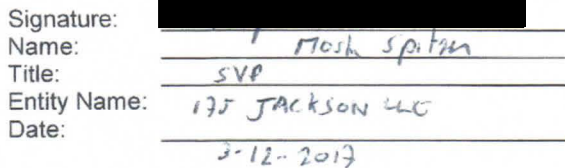 Signature:
Name: Mosh Spitzen
Title: SVP
Entity Name: 175 JACKSON LLC
Date: 3-12-2017